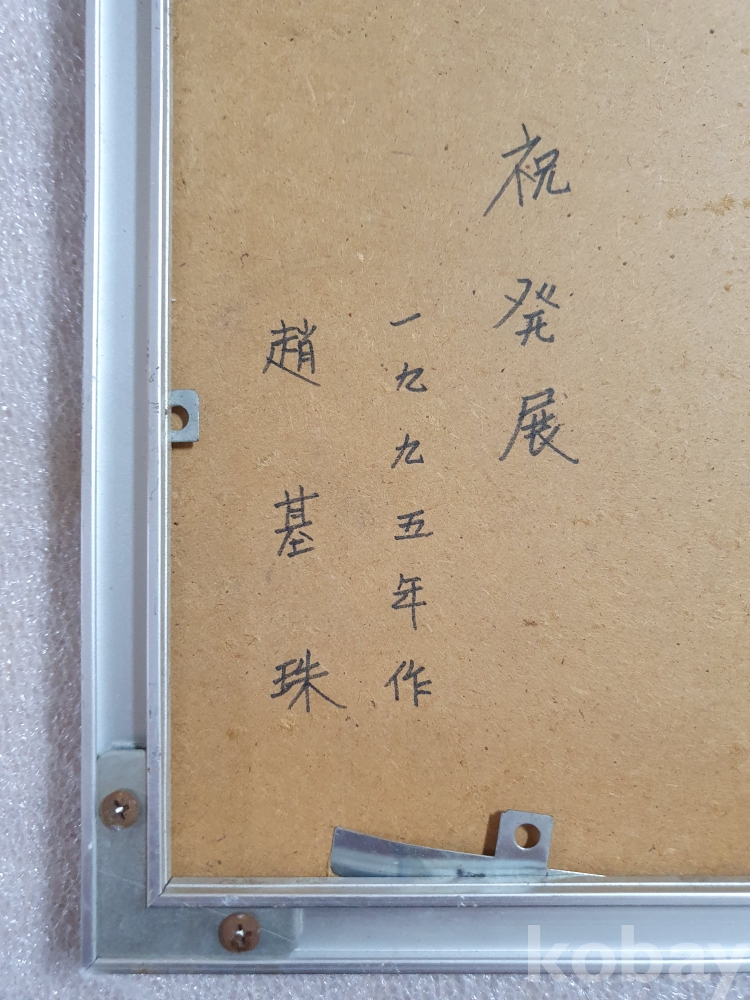 祝発展
一九九五年作
趙基珠
kobay